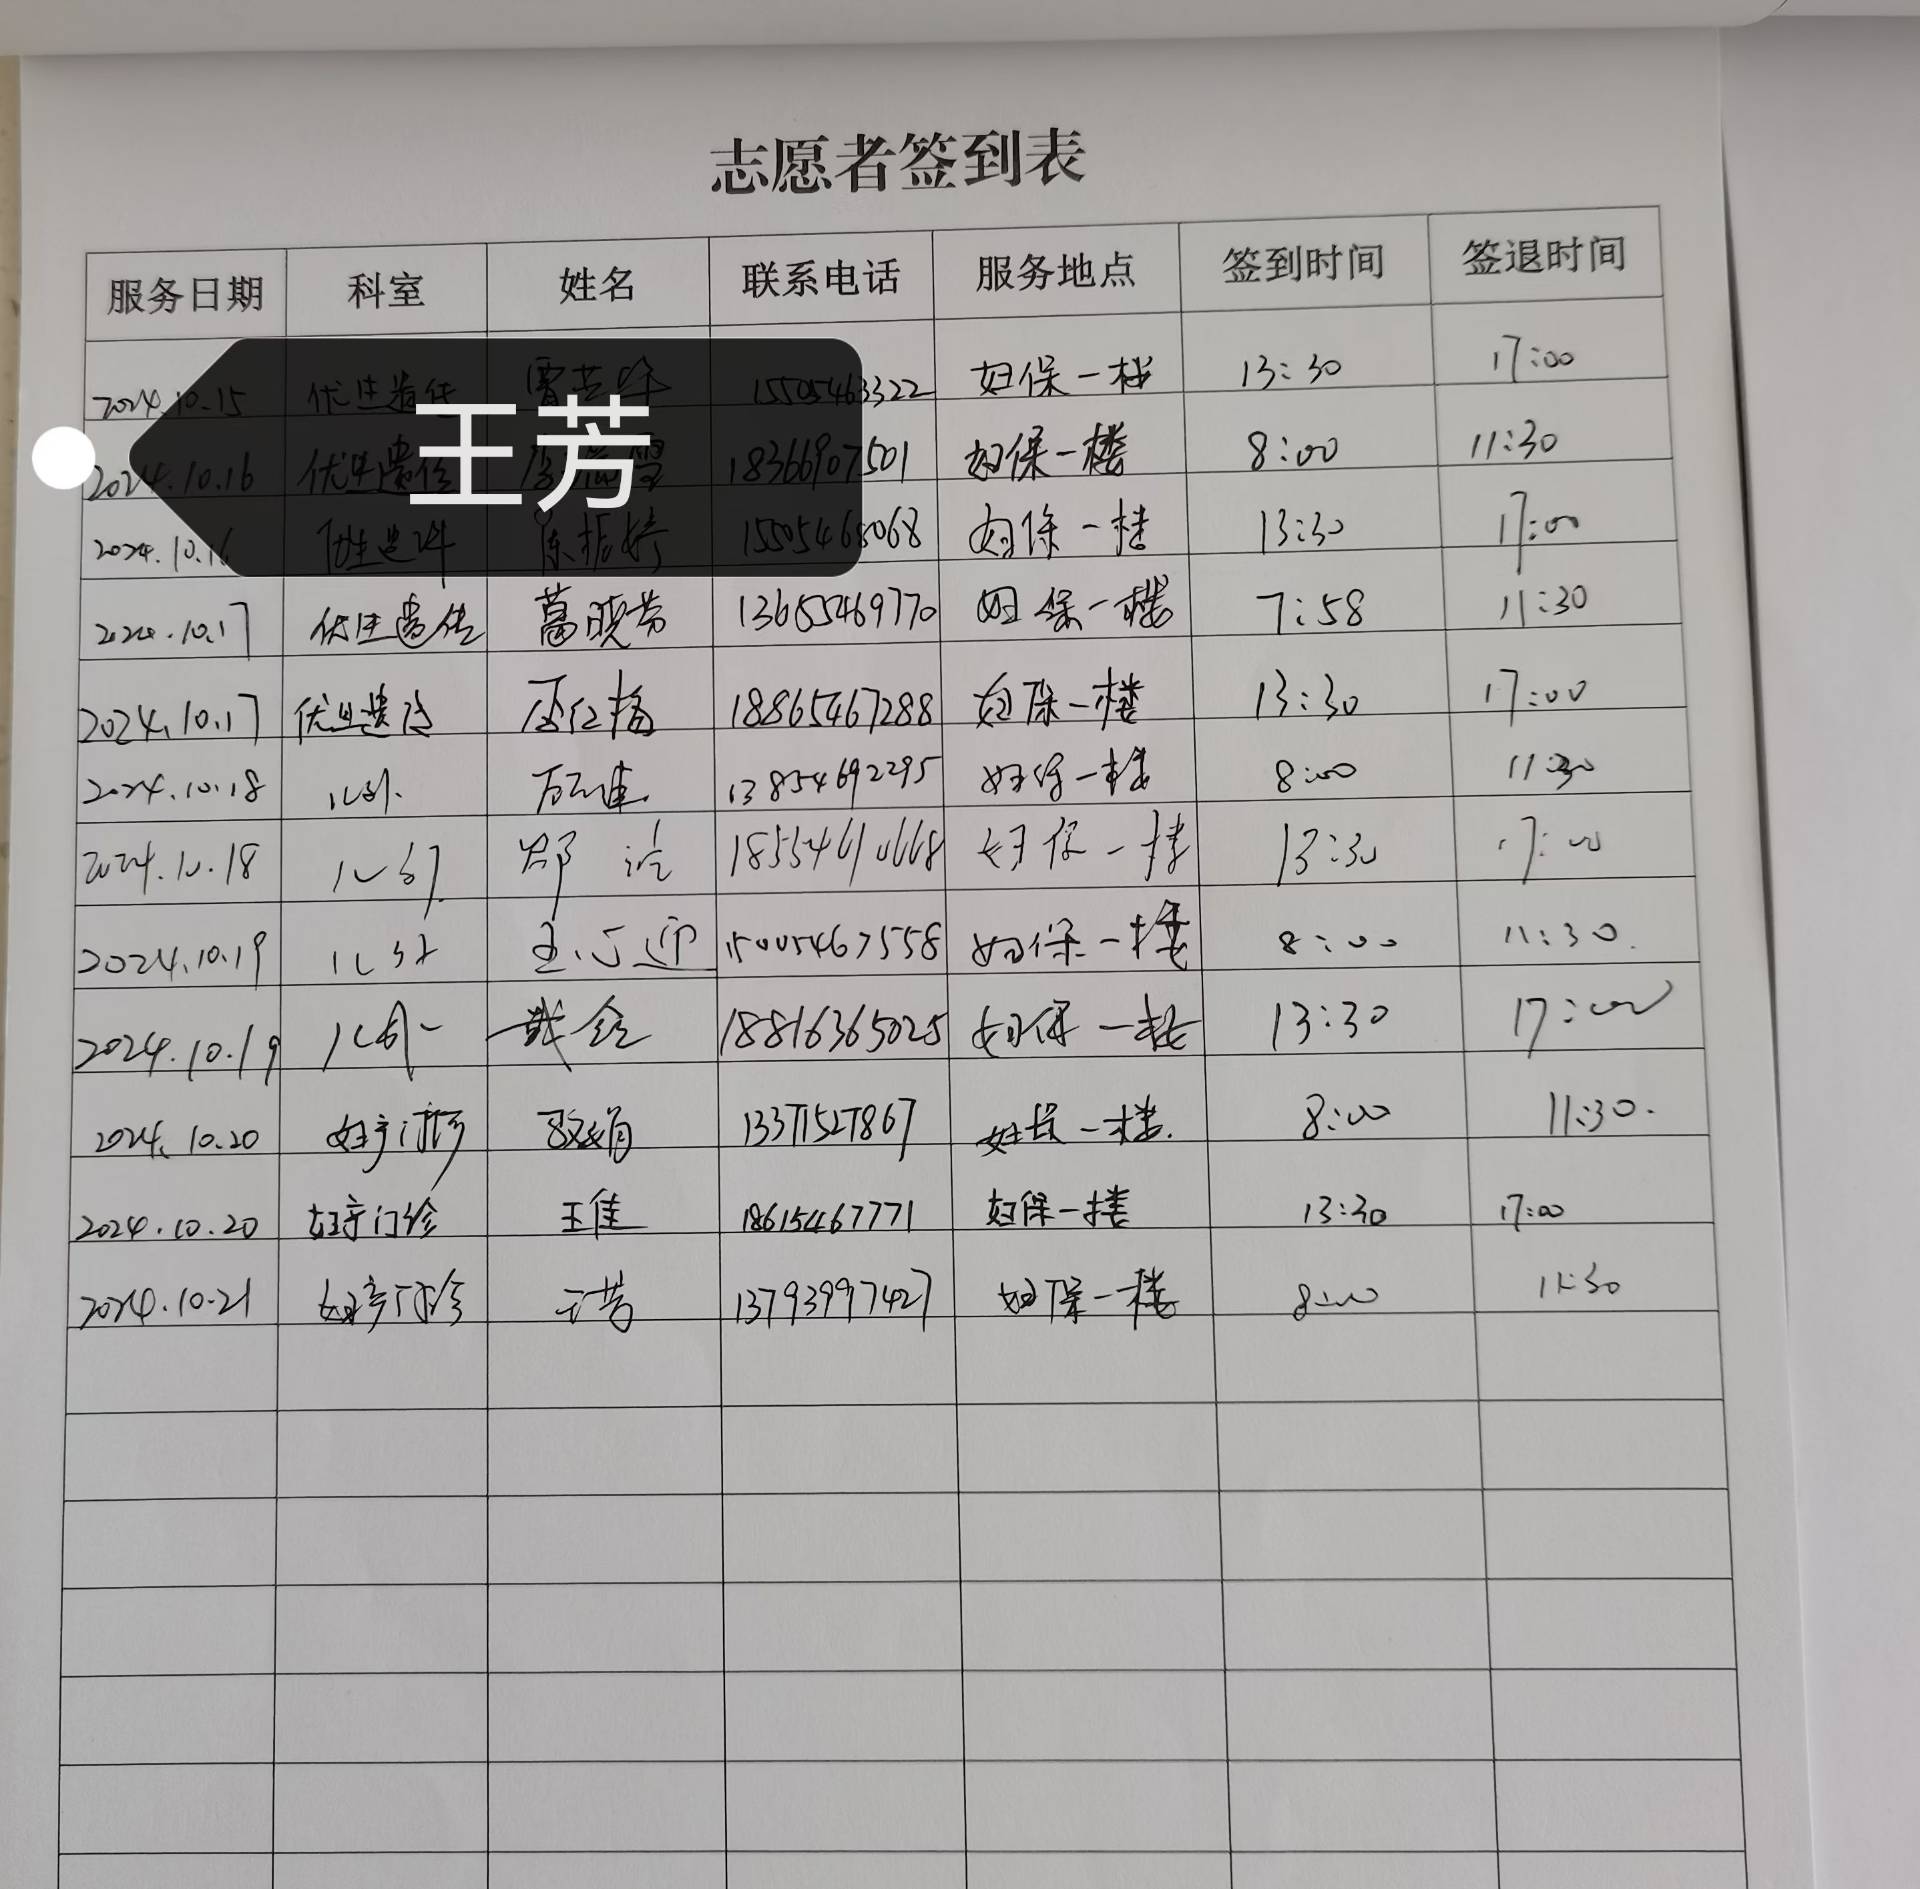 志愿者签到表
服务日期 科室 姓名 联系电话 服务地点 签到时间 签退时间
2024.10.15 优生遗传 15505463322 妇保一楼 13:30 17:00
王芳
2024.10.16 优生遗传 18366907501 妇保一楼 8:00 11:30
2024.10.16 优生遗传 陈振婷 15505468068 妇保一楼 13:30 17:00
2024.10.17 优生遗传 葛晓芳 13655469770 妇保一楼 7:58 11:30
2024.10.17 优生遗传 18865467288 妇保一楼 13:30 17:00
2024.10.18 儿外 13854692295 妇保一楼 8:00 11:30
2024.10.18 儿外 妇保一楼 13:30 17:00
2024.10.19 儿外 15005467558 妇保一楼 8:00 11:30.
2024.10.19 儿外 戴鑫 18816365025 妇保一楼 13:30 17:00
2024.10.20 妇产门诊 13371527867 妇保一楼. 8:00 11:30.
2024.10.20 妇产门诊 王佳 18615467771 妇保一楼 13:30 17:00
2024.10.21 妇产门诊 王芳 13793997427 妇保一楼 8:00 11:30